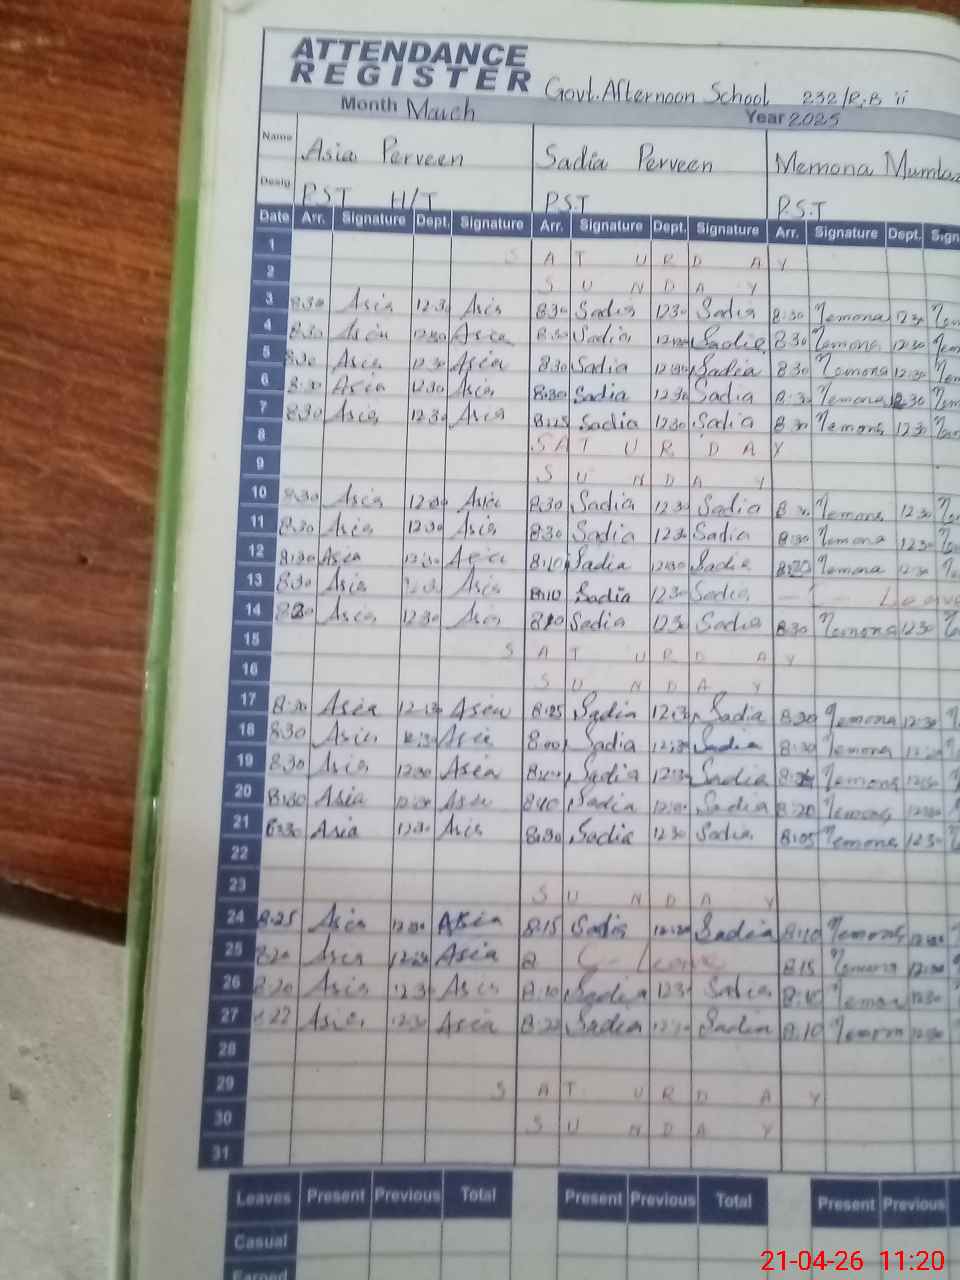 ATTENDANCE
REGISTER Govt. Afternoon School 232/R.B ii
Month March Year 2025
Name Asia Perveen Sadia Perveen Memona Mumtaz
Desig P.S.T H/T P.S.T P.S.T
Date Arr. Signature Dept. Signature Arr. Signature Dept. Signature Arr. Signature Dept.
1 S A T U R D A Y
2 S U N D A Y
3 8:30 Asia 12:30 Asia 8:30 Sadia 12:30 Sadia 8:30 Memona 12:30
4 8:30 Asia 12:30 Asia 8:30 Sadia 12:30 Sadia 8:30 Memona 12:30
5 8:30 Asia 12:30 Asia 8:30 Sadia 12:30 Sadia 8:30 Memona 12:30
6 8:30 Asia 12:30 Asia 8:30 Sadia 12:30 Sadia 8:30 Memona 12:30
7 8:30 Asia 12:30 Asia 8:25 Sadia 12:30 Sadia 8:30 Memona 12:30
8 S A T U R D A Y
9 S U N D A Y
10 8:30 Asia 12:30 Asia 8:30 Sadia 12:30 Sadia 8:30 Memona 12:30
11 8:30 Asia 12:30 Asia 8:30 Sadia 12:30 Sadia 8:30 Memona 12:30
12 8:30 Asia 12:30 Asia 8:10 Sadia 12:30 Sadia 8:20 Memona 12:30
13 8:30 Asia Asia 8:10 Sadia 12:30 Sadia Leave
14 Asia 12:30 Asia 8:10 Sadia 12:30 Sadia 8:30 Memona 12:30
15 S A T U R D A Y
16 S U N D A Y
17 8:20 Asia 12:30 Asia 8:25 Sadia 12:30 Sadia 8:20 Memona 12:30
18 8:30 Asia 12:30 Asia 8:00 Sadia 12:30 Sadia 8:30 Memona
19 8:30 Asia 12:30 Asia Sadia 12:30 Sadia Memona 12:30
20 8:30 Asia 12:30 Asia 8:10 Sadia Sadia 8:20 Memona
21 8:30 Asia 12:30 Asia 8:30 Sadia 12:30 Sadia 8:05 Memona 12:30
22
23 S U N D A Y
24 8:25 Asia 12:30 Asia 8:15 Sadia Sadia 8:10 Memona
25 8:20 Asia 12:30 Asia 8 C-Leave 8:15 Memona 12:30
26 8:20 Asia 12:30 Asia 8:10 Sadia 12:30 Sadia 8:10 Memona 12:30
27 8:22 Asia 12:30 Asia 8:22 Sadia Sadia 8:10 Memona
28
29 S A T U R D A Y
30 S U N D A Y
31
Leaves Present Previous Total Present Previous Total Present Previous
Casual
Earned
21-04-26 11:20